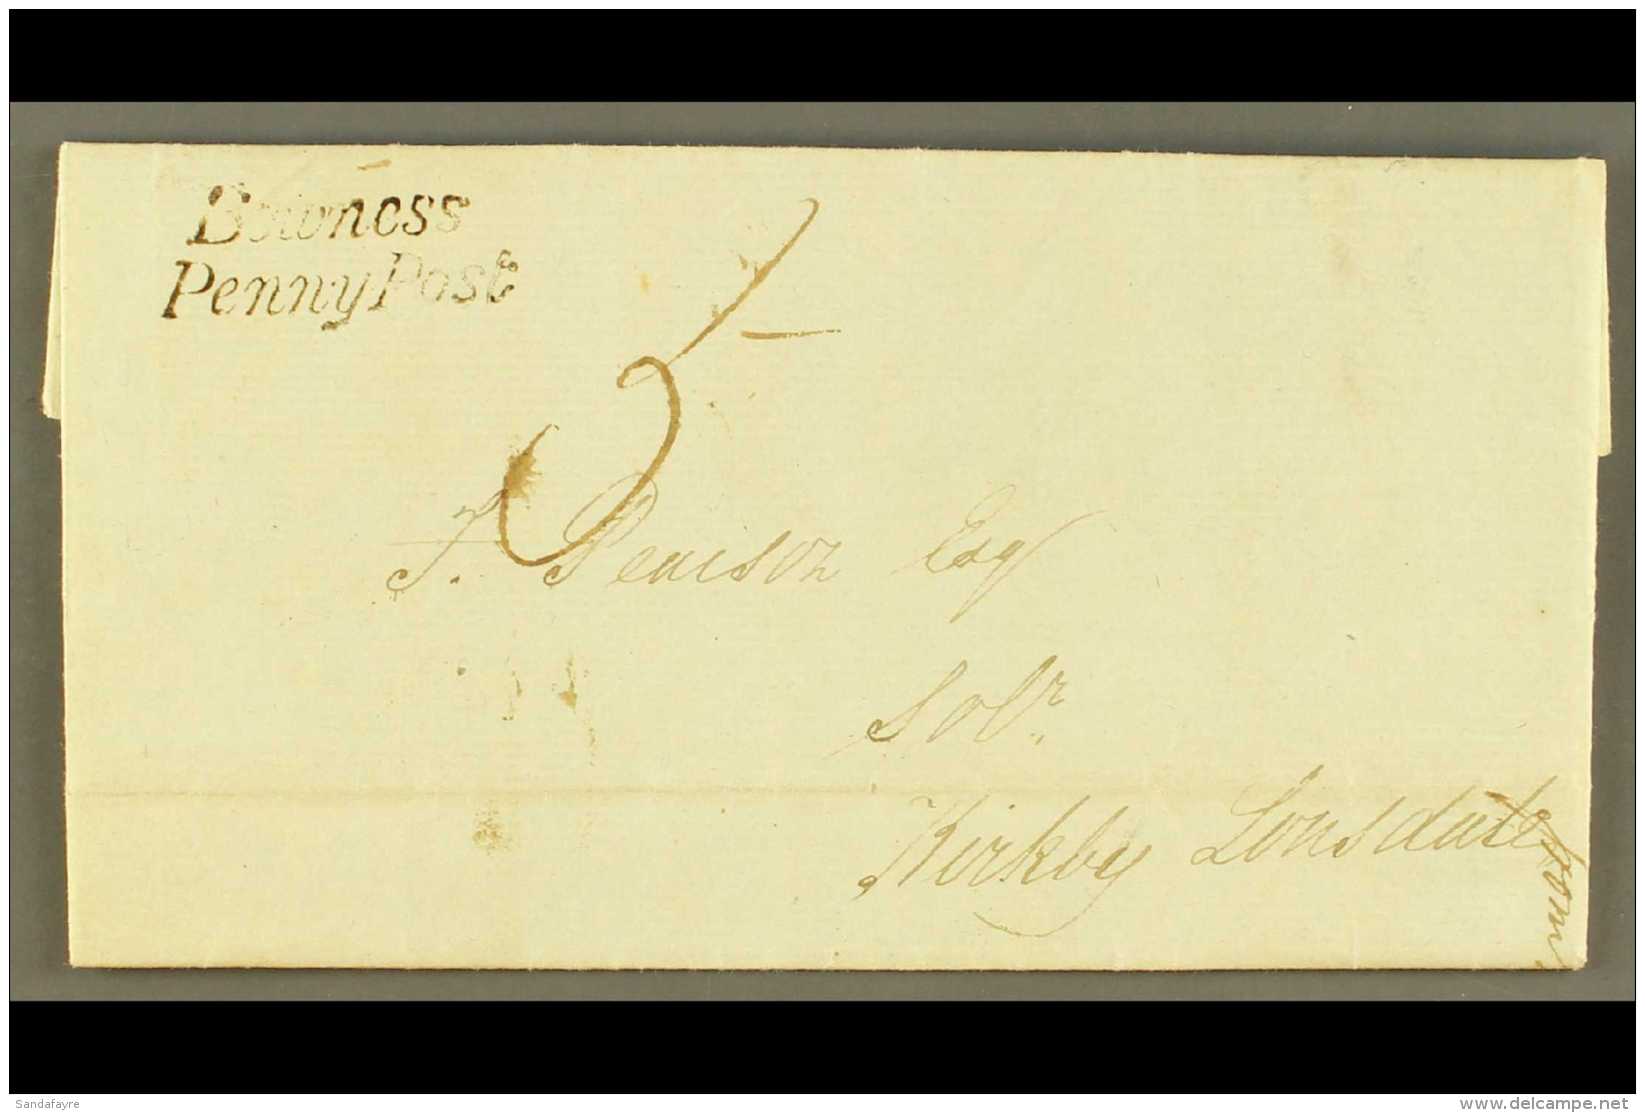 Bowness
Penny Post
5
J. Pearson Esq
Solr.
Kirkby Lonsdale
from
Sandafayre
www.delcampe.net